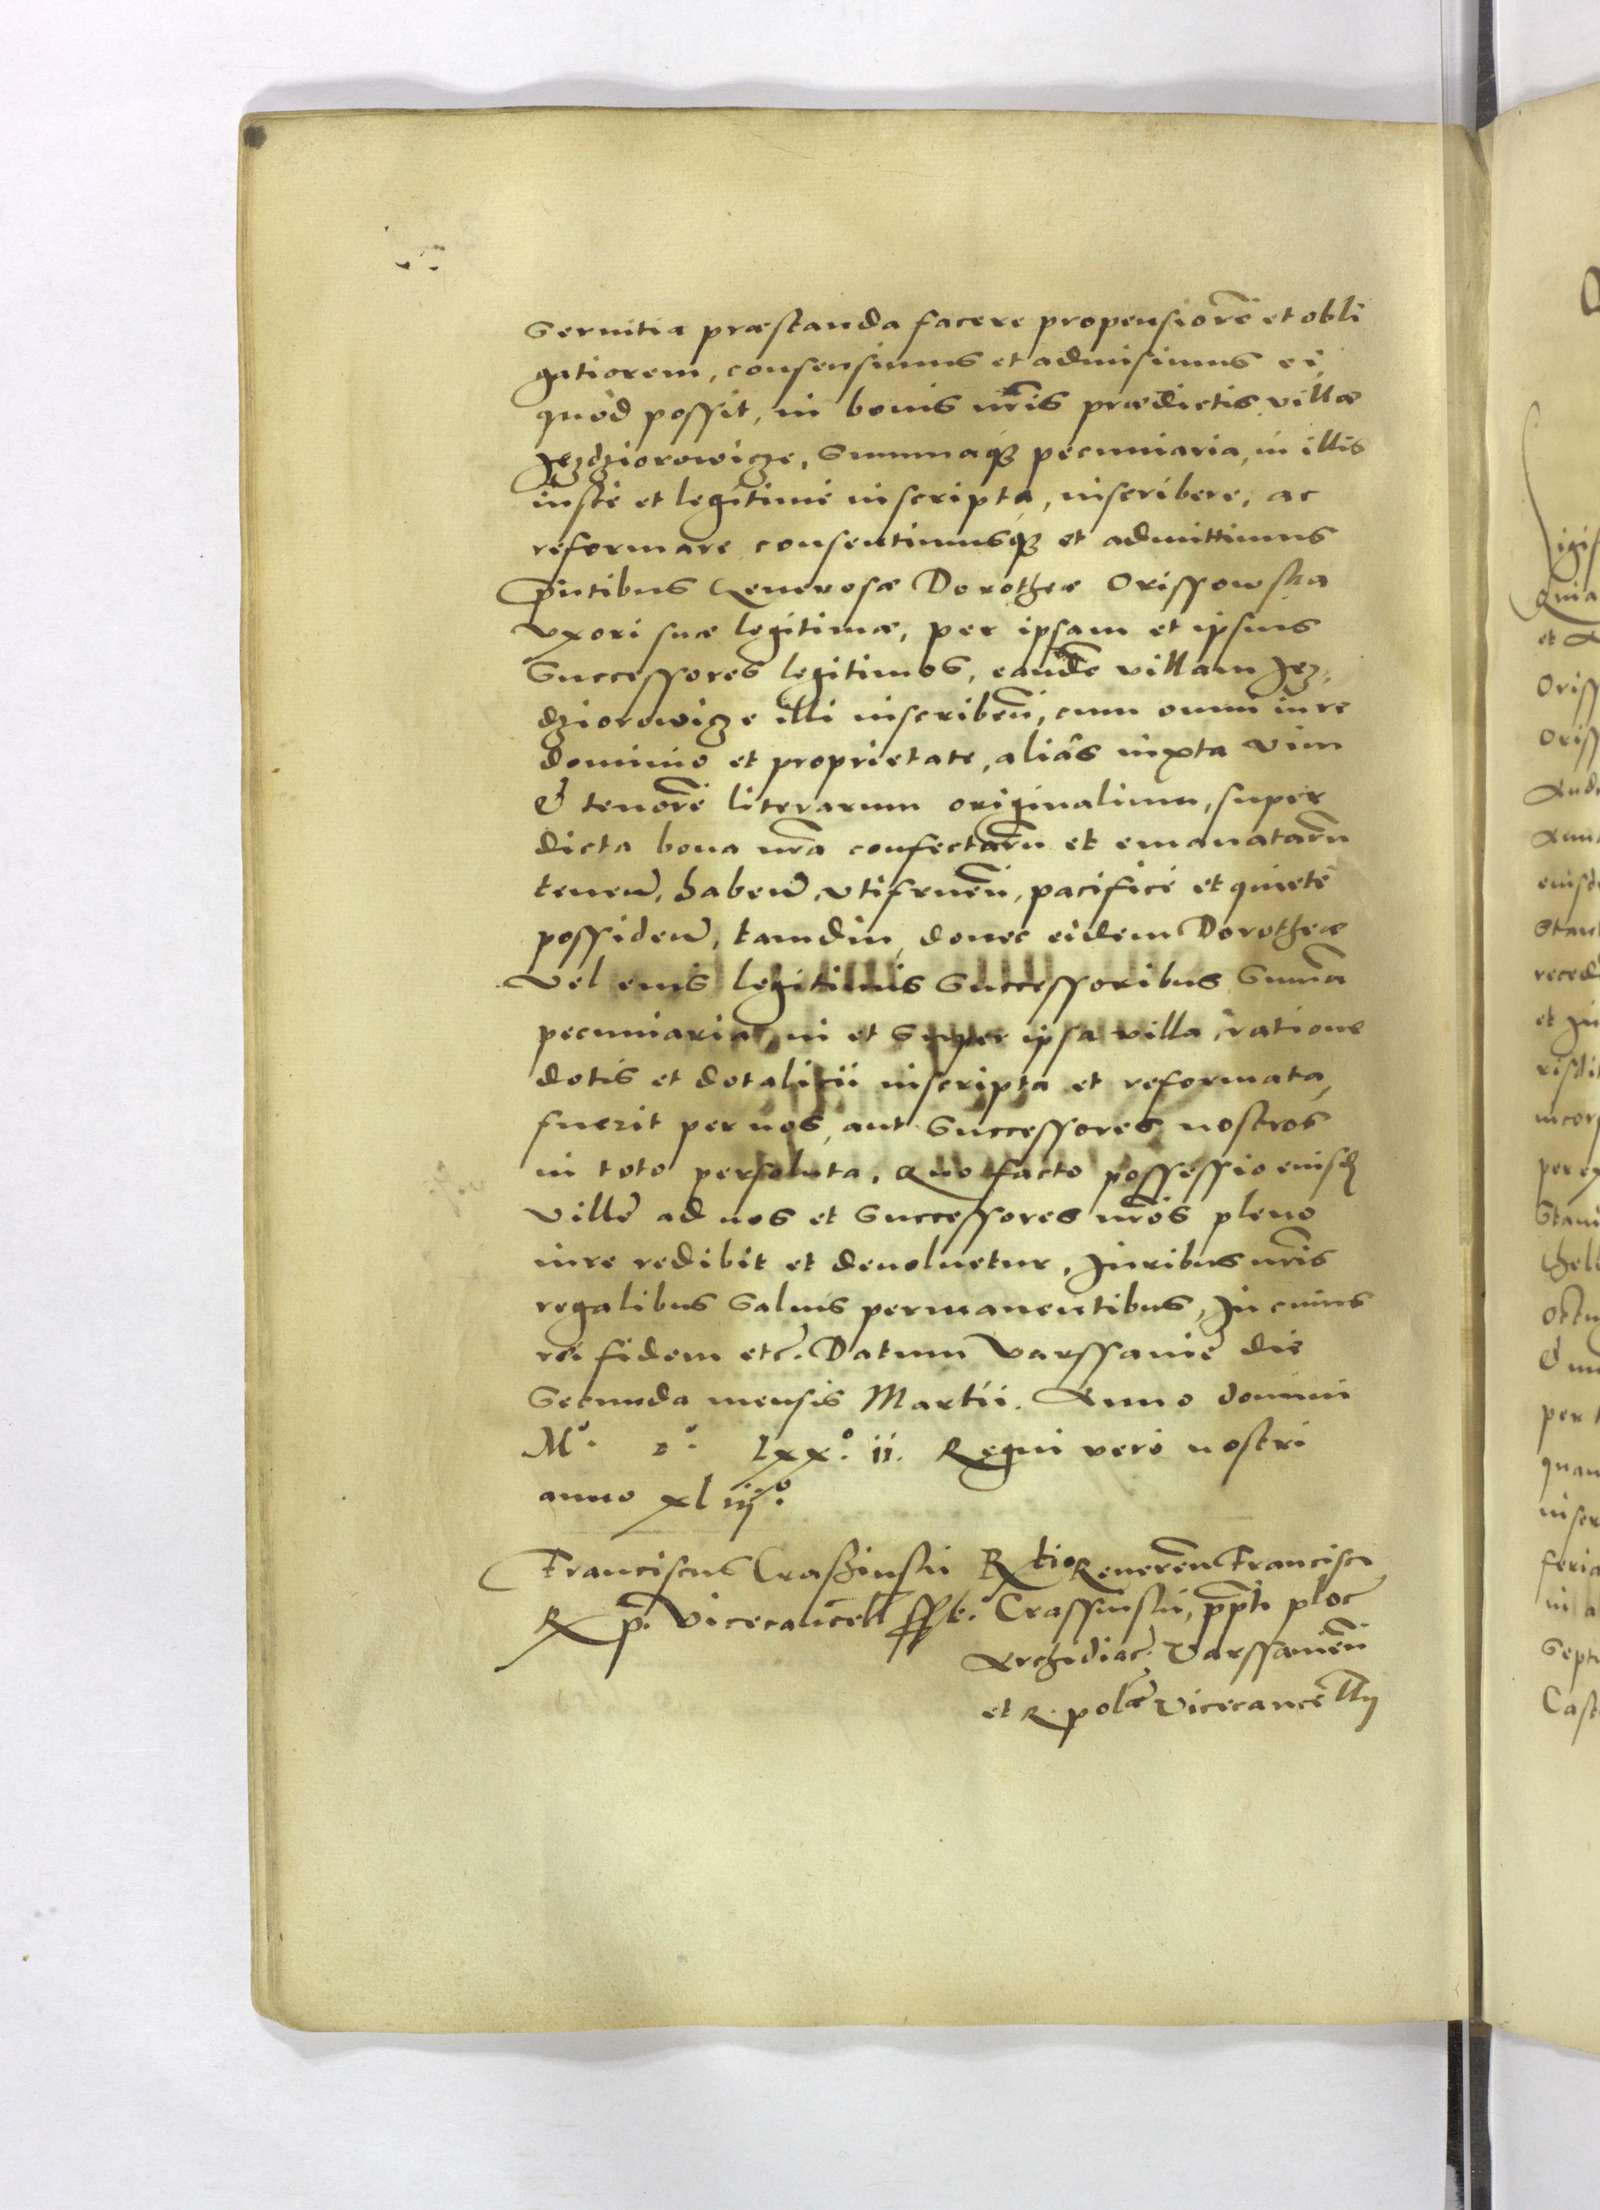 Seruitia præstanda facere propensiorē et obli
gatiorem, consensimus et admisimus ei,
quòd possit, in bonis nr̄is prædictis villæ
Jezdziorowicze, Summaq₃ pecuniaria, in illis
iustè et legitimè inscripta, inscribere, ac
reformare consentimusq₃ et admittimus
p̄ntibus Generosæ Dorotheæ Orissowska
Vxori suæ legitimæ, per ipsam et ipsius
Successores legitimos, eandē villam Jez,
dziorowicze illi inscribeñ, cum omni iure
dominio et proprietate, aliàs iuxta vim
& tenorē literarum originalium, super
dicta bona nr̄a confectarū et emanatarū
teneñ, habeñ, vtifrueñ, pacificè et quietè
possideñ, tamdiu, donec eidem Dorotheæ
Vel eius legitimis Successoribus Summa
pecuniaria, in et Super ipsa villa, ratione
dotis et dotalitii inscripta et reformata,
fuerit per nos, aut Successores nostros
in toto persoluta, Quo facto possessio eiusd
Villę ad nos et Successores nr̄os pleno
iure redibit et deuoluetur, Juribus nr̄is
regalibus Saluis permanentibus, In cuius
rei fidem etc̄. Datum Varssauiæ die
Secunda mensis Martii. Anno domini
Mº. Dº. Lxxº. ii. Regni vero nostri
anno xl iijº.
Franciscus Craszinskii
R p. Vicecancell sst.
Rtio Reuereñ Francisci
Crassinskii, pp̄ti ploc̄
Archidiac̄. Varssauieñ
et R. polæ Vicecancellij
igis
Quia
et A
Oriss
Oriss
eiusd
recedē
et in
per ex
per t
quan
feria
Septi
Cast